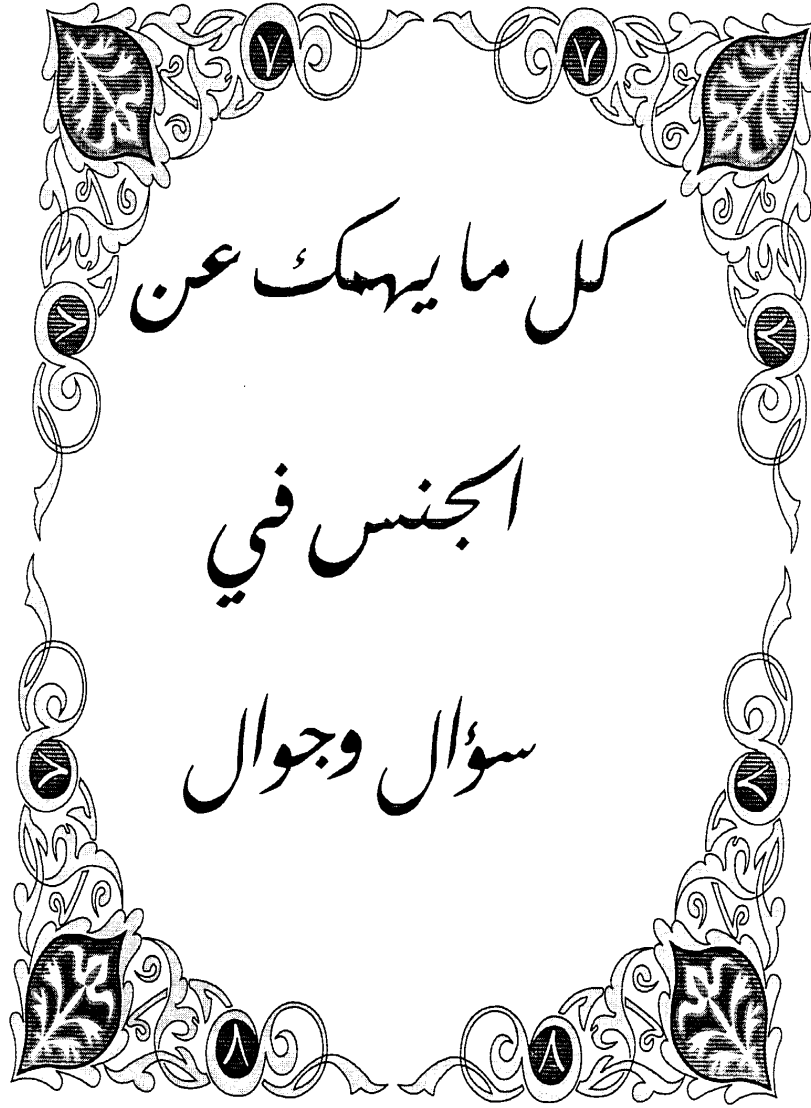 كل ما يهمك عن
الجنس في
سؤال وجوال